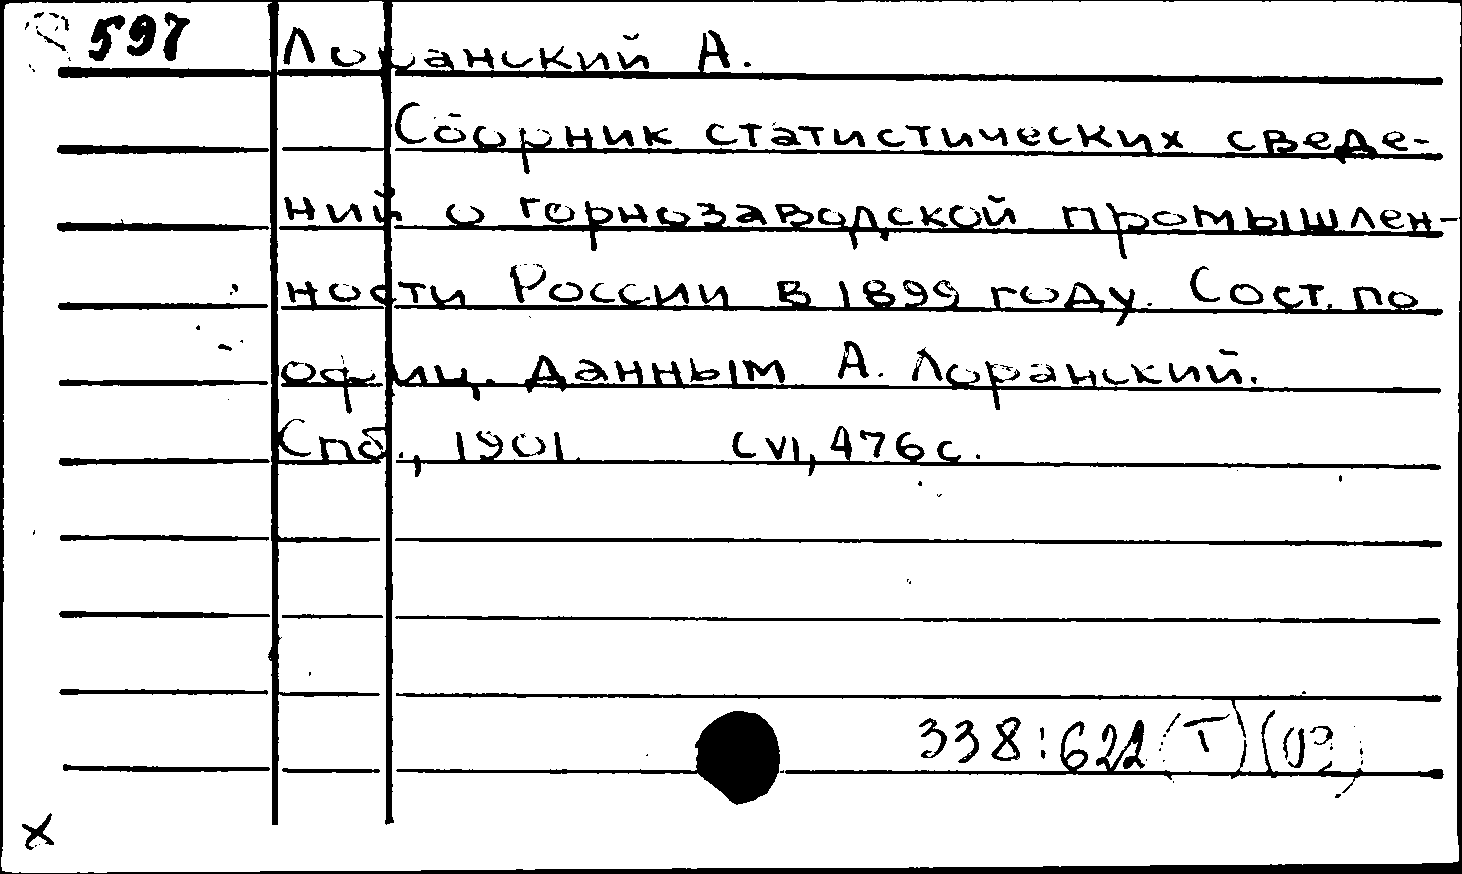 597
Лоранский А.
Сборник статистических сведе-
ний о горнозаводской промышлен-
ности России в 1899 году. Сост. по
офиц. данным А. Лоранский.
Спб., 1901. CVI, 476 с.
338:622(Т)(09)
х